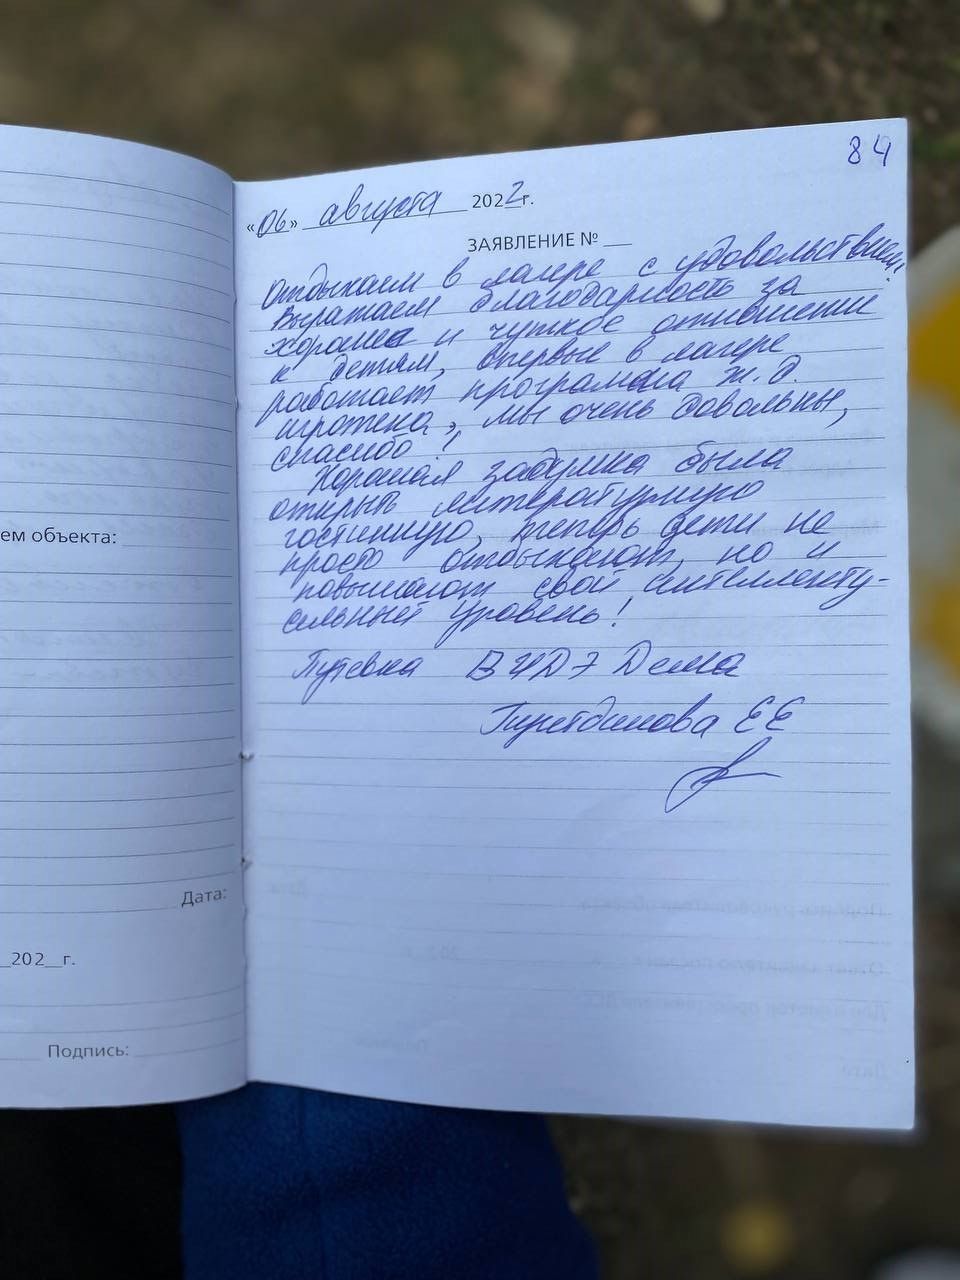 84
«06» августа 2022г.
ЗАЯВЛЕНИЕ № __
Отдыхаем в лагере с удовольствием,
выражаем благодарность за
хорошее и чуткое отношение
к детям, впервые в лагере
работает программа ж.д.
игротека, мы очень довольны,
спасибо!,
Хорошая задумка была
открыть литературную
гостинную, теперь дети не
просто отдыхают, но и
повышают свой интеллекту-
альный уровень!
Путевка ВЧДЭ Дема
ЕЕ
ем объекта:
Дата:
__202__г.
Подпись: